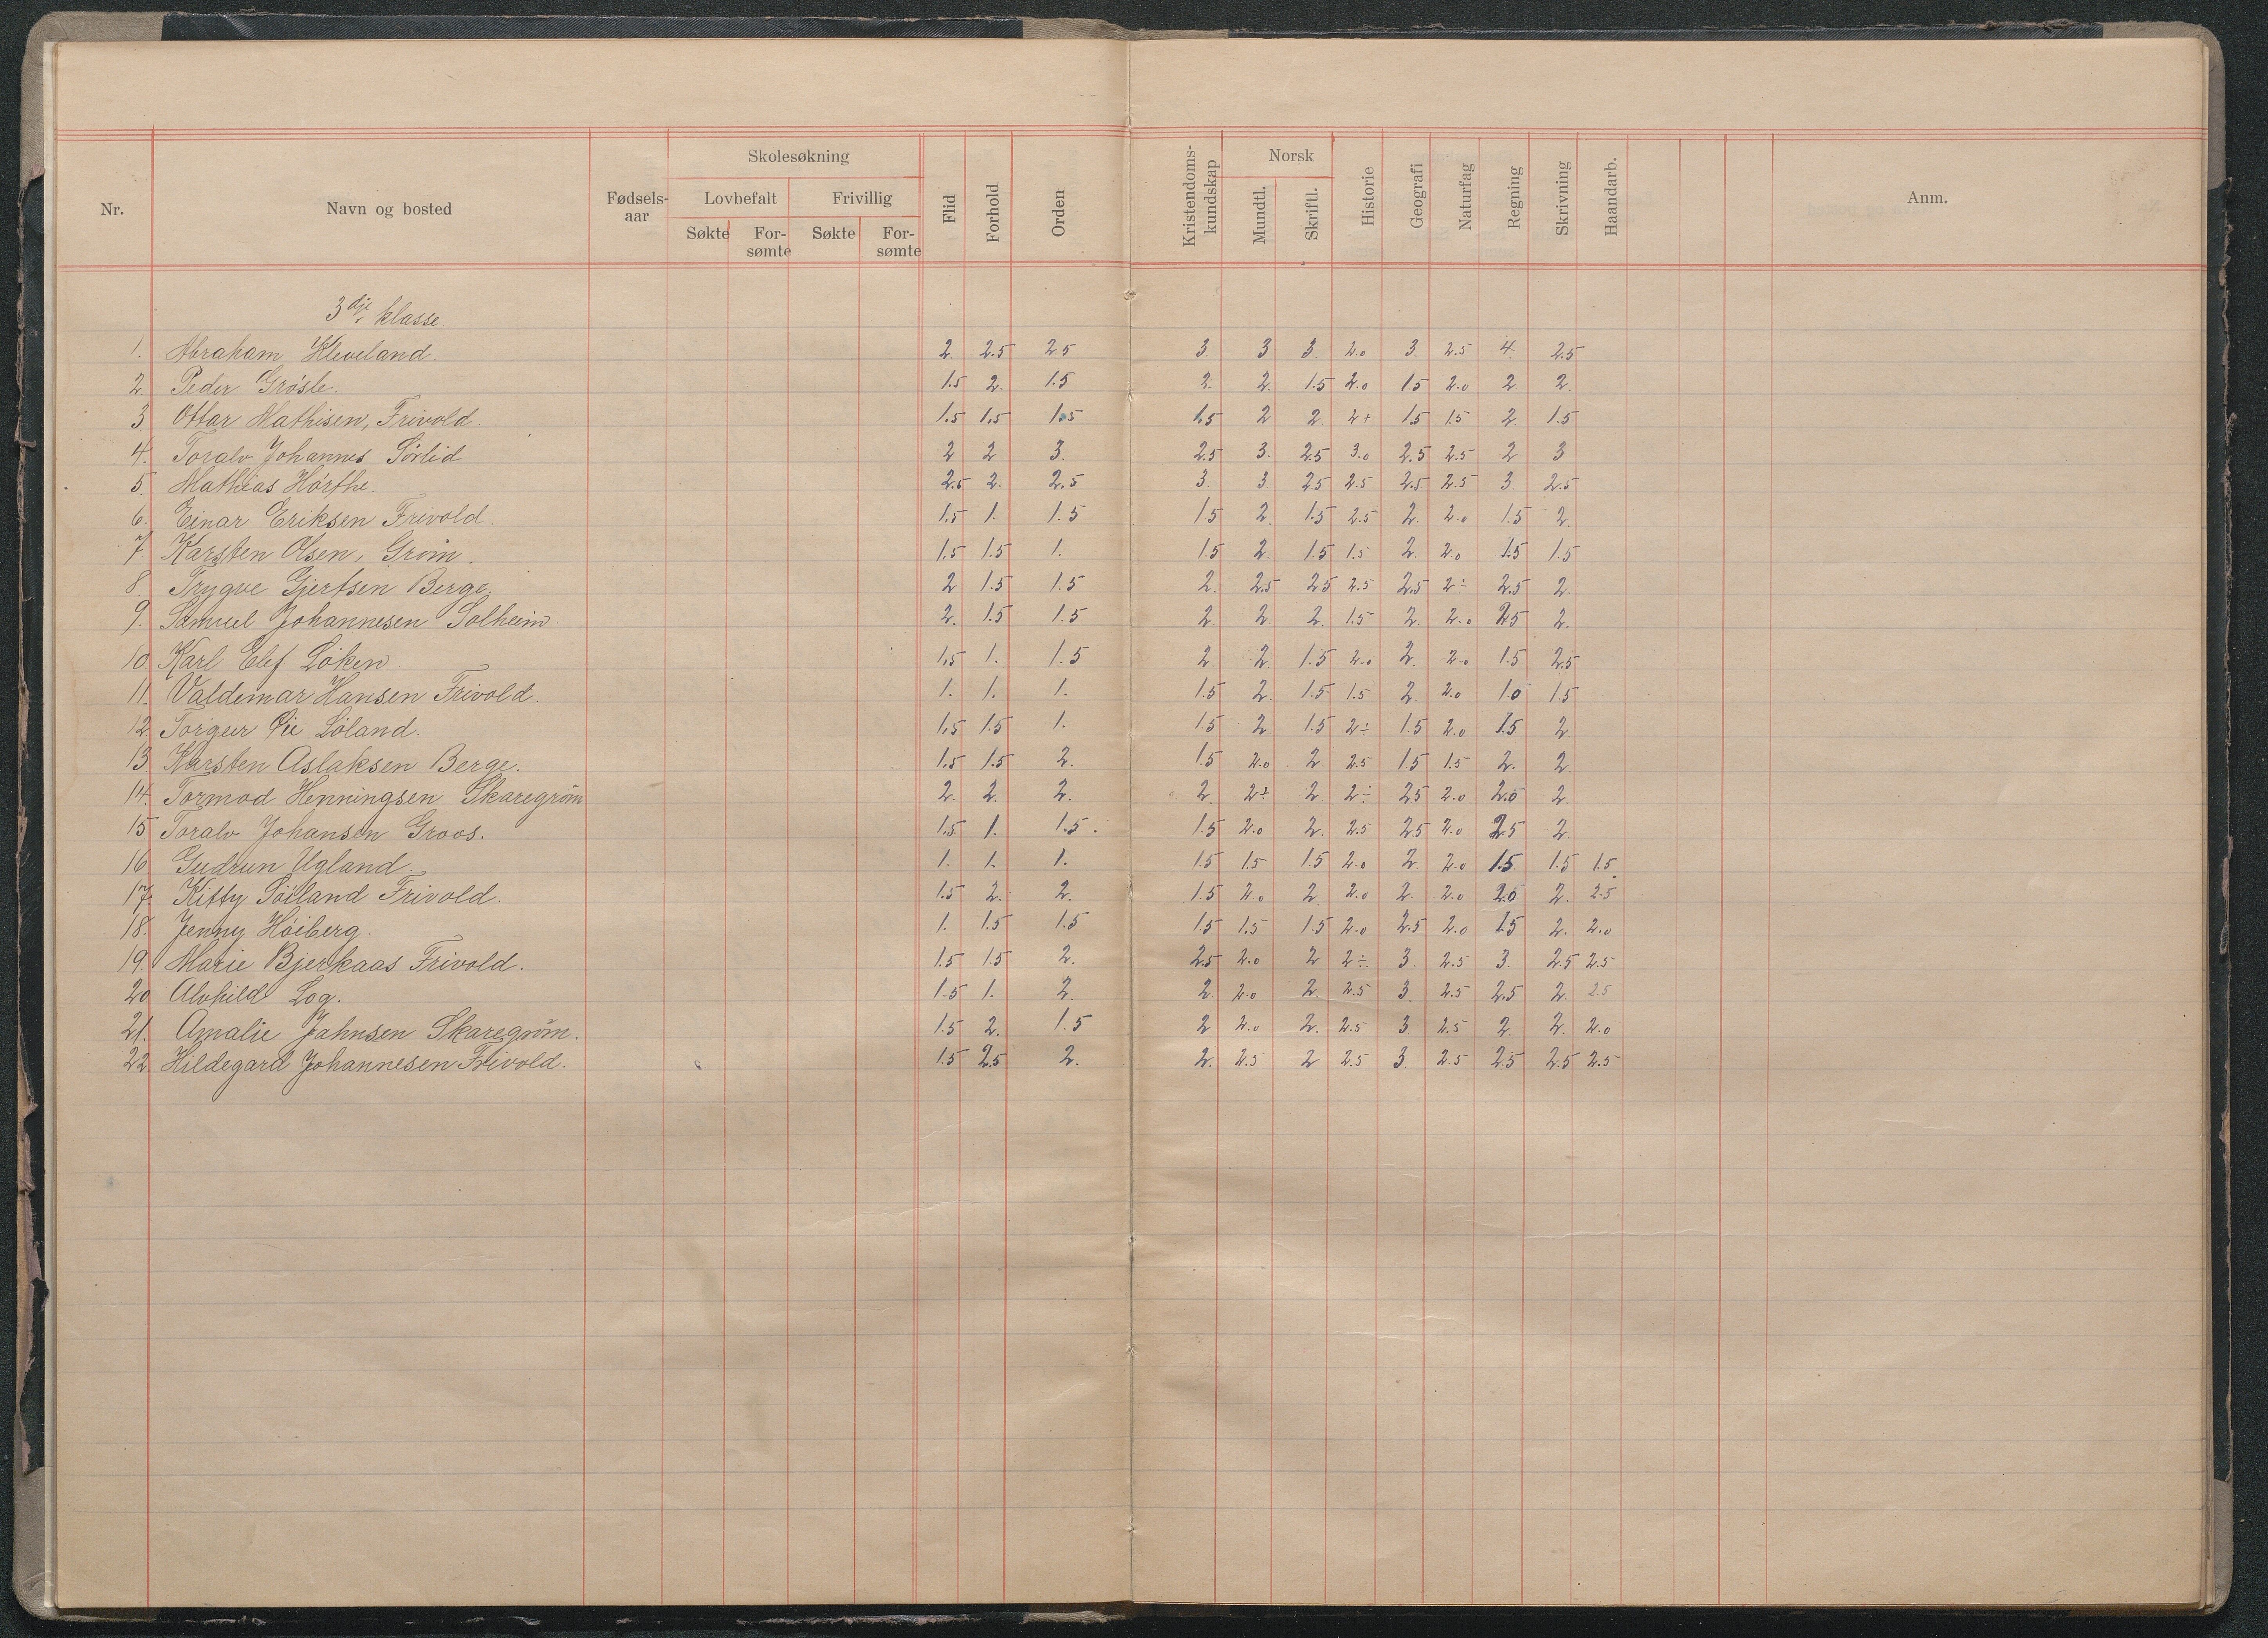 Nr. Navn og bosted Fødsels-aar Skolesøkning Lovbefalt Søkte For-sømte Frivillig Søkte For-sømte Flid Forhold Orden Kristendoms-kundskap Norsk Mundtl. Skriftl. Historie Geografi Naturfag Regning Skrivning Haandarb. Anm.
3dje klasse
1. Abraham Kleveland. 2. 2.5 2.5 3. 3 3. 2.0 3. 2.5 4. 2.5
2. Peder Grøsle. 1.5 2. 1.5 2. 2. 1.5 2.0 1.5 2.0 2 2.
3. Ottar Mathisen, Frivold. 1.5 1.5 1.5 1.5 2 2 2+ 1.5 1.5 2. 1.5
4. Toralv Johannes Sørlid 2 2 3. 2.5 3. 2.5 3.0 2.5 2.5 2 3
5. Mathias Hørthe. 2.5 2. 2.5 3. 3. 2.5 2.5 2.5 2.5 3. 2.5
6. Einar Eriksen Frivold. 1.5 1. 1.5 1.5 2. 1.5 2.5 2. 2.0 1.5 2.
7. Karsten Olsen, Grøm. 1.5 1.5 1. 1.5 2. 1.5 1.5 2. 2.0 1.5 1.5
8. Trygve Gjertsen Berge. 2 1.5 1.5 2. 2.5 2.5 2.5 2.5 2÷ 2.5 2.
9. Samuel Johannesen Solheim. 2. 1.5 1.5 2. 2. 2. 1.5 2. 2.0 2.5 2.
10. Karl Elef Løken. 1.5 1. 1.5 2. 2. 1.5 2.0 2. 2.0 1.5 2.5
11. Valdemar Hansen Frivold. 1. 1. 1. 1.5 2. 1.5 1.5 2. 2.0 1.0 1.5
12. Torgeir Øie Løland. 1.5 1.5 1. 1.5 2 1.5 2÷ 1.5 2.0 1.5 2.
13. Karsten Aslaksen Berge. 1.5 1.5 2. 1.5 2.0 2. 2.5 1.5 1.5 2. 2.
14. Tormod Henningsen Skaregrøm 2. 2. 2. 2. 2÷ 2. 2÷ 2.5 2.0 2.0 2.
15 Toralv Johansen Groos. 1.5 1. 1.5. 1.5 2.0 2. 2.5 2.5 2.0 2.5 2.
16 Gudrun Ugland. 1. 1. 1. 1.5 1.5 1.5 2.0 2. 2.0 1.5 1.5 1.5
17. Kitty Søiland Frivold. 1.5 2. 2. 1.5 2.0 2. 2.0 2. 2.0 2.0 2. 2.5
18. Jenny Høiberg. 1. 1.5 1.5 1.5 1.5 1.5 2.0 2.5 2.0 1.5 2. 2.0
19. Marie Bjerkaas Frivold. 1.5 1.5 2. 2.5 2.0 2 2÷ 3. 2.5 3. 2.5 2.5
20 Alvhild Log. 1.5 1. 2. 2. 2.0 2. 2.5 3. 2.5 2.5 2. 2.5
21. Amalie Jahnsen Skaregrøm. 1.5 2. 1.5 2 2.0 2. 2.5 3. 2.5 2. 2. 2.0
22. Hildegard Johannesen Frivold. 1.5 2.5 2. 2. 2.5 2 2.5 3. 2.5 2.5 2.5 2.5